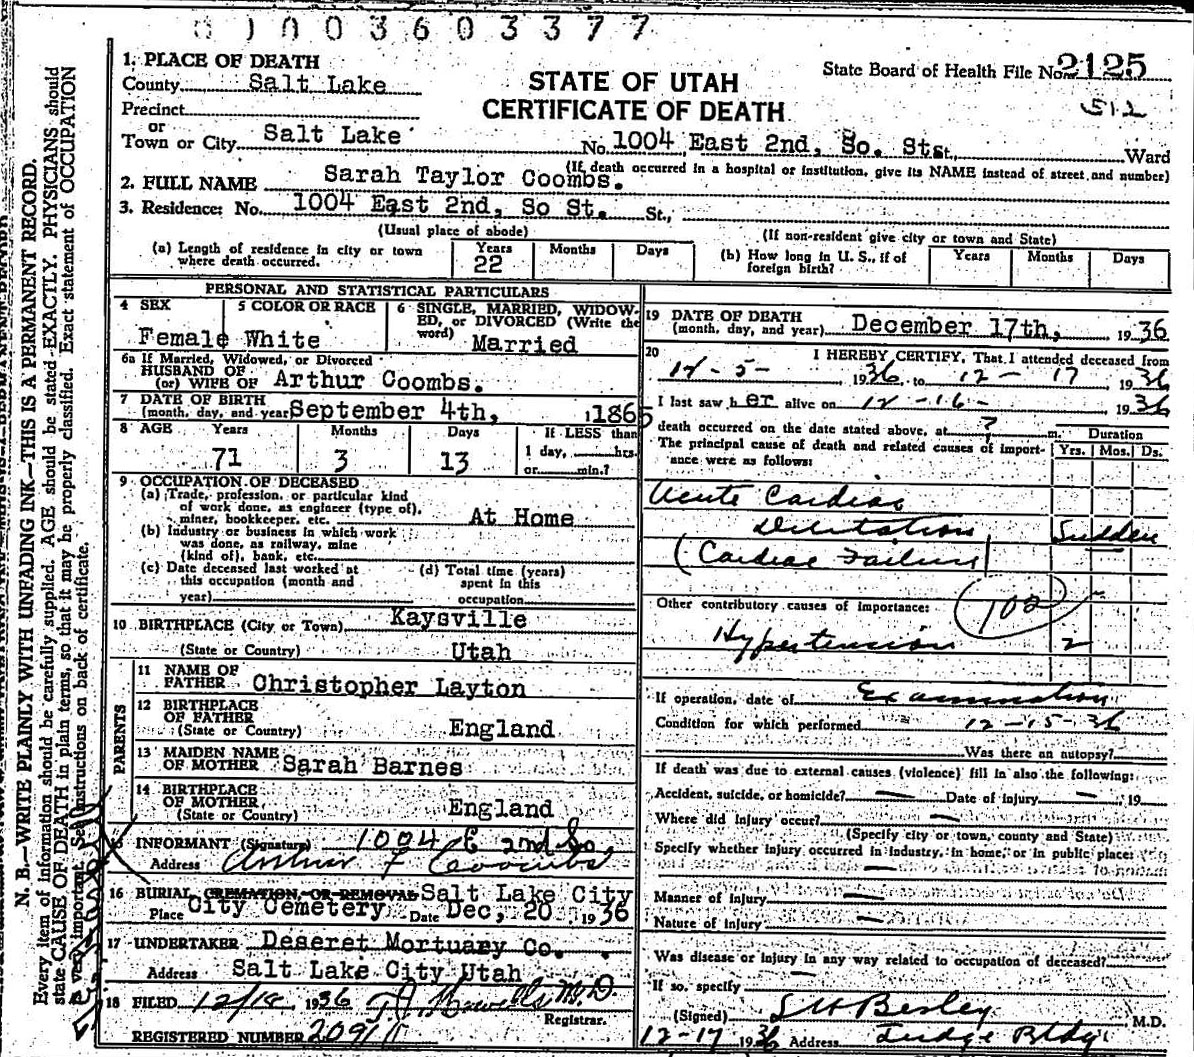 01003603377
1. PLACE OF DEATH
County Salt Lake
STATE OF UTAH
CERTIFICATE OF DEATH
State Board of Health File No. 2125
512
Precinct
or
Town or City Salt Lake No. 1004 East 2nd, So. St. St., Ward
(If death occurred in a hospital or institution, give its NAME instead of street and number)
2. FULL NAME Sarah Taylor Coombs.
3. Residence: No. 1004 East 2nd, So St. St.,
(Usual place of abode) (If non-resident give city or town and State)
(a) Length of residence in city or town where death occurred. Years 22 Months Days
(b) How long in U. S., if of foreign birth? Years Months Days
PERSONAL AND STATISTICAL PARTICULARS
4 SEX Female
5 COLOR OR RACE White
6 SINGLE, MARRIED, WIDOWED, or DIVORCED (Write the word) Married
6a If Married, Widowed, or Divorced
HUSBAND OF
(or) WIFE OF Arthur Coombs.
7 DATE OF BIRTH
(month, day, and year) September 4th, 1865
8 AGE Years 71 Months 3 Days 13 If LESS than 1 day, hrs. or min.?
9 OCCUPATION OF DECEASED
(a) Trade, profession, or particular kind
of work done, as engineer (type of),
miner, bookkeeper, etc. At Home
(b) Industry or business in which work
was done, as railway, mine
(kind of), bank, etc.
(c) Date deceased last worked at
this occupation (month and
year)
(d) Total time (years)
spent in this
occupation
10 BIRTHPLACE (City or Town) Kaysville
(State or Country) Utah
PARENTS
11 NAME OF FATHER Christopher Layton
12 BIRTHPLACE OF FATHER
(State or Country) England
13 MAIDEN NAME OF MOTHER Sarah Barnes
14 BIRTHPLACE OF MOTHER
(State or Country) England
15 INFORMANT (Signature) 1004 E 2nd So
Address Arthur F Coombs
16 BURIAL CREMATION, OR REMOVAL Salt Lake City
Place City Cemetery Date Dec, 20 1936
17 UNDERTAKER Deseret Mortuary Co.
Address Salt Lake City Utah
18 FILED 12/18 1936 Howells M.D.
Registrar.
REGISTERED NUMBER 2091
19 DATE OF DEATH
(month, day, and year) December 17th, 1936
20 I HEREBY CERTIFY, That I attended deceased from
12-5- 1936 to 12-17 1936
I last saw her alive on 12-16- 1936
death occurred on the date stated above, at ? m. Duration
The principal cause of death and related causes of importance were as follows: Yrs. Mos. Ds.
Acute Cardiac
Dilitation Sudden
(Cardiac Failure)
Other contributory causes of importance: 102
Hypertension 2
If operation, date of Examination
Condition for which performed 12-15-36
Was there an autopsy?
If death was due to external causes (violence) fill in also the following:
Accident, suicide, or homicide? — Date of injury — 19
Where did injury occur? —
(Specify city or town, county and State)
Specify whether injury occurred in industry, in home, or in public place:
—
Manner of injury —
Nature of injury —
Was disease or injury in any way related to occupation of deceased?
—
If so, specify
(Signed) Besley M.D.
12-17 1936 Address Judge Bldg
N. B.—WRITE PLAINLY WITH UNFADING INK—THIS IS A PERMANENT RECORD.
Every item of information should be carefully supplied. AGE should be stated EXACTLY. PHYSICIANS should
state CAUSE OF DEATH in plain terms, so that it may be properly classified. Exact statement of OCCUPATION
very important. See instructions on back of certificate.